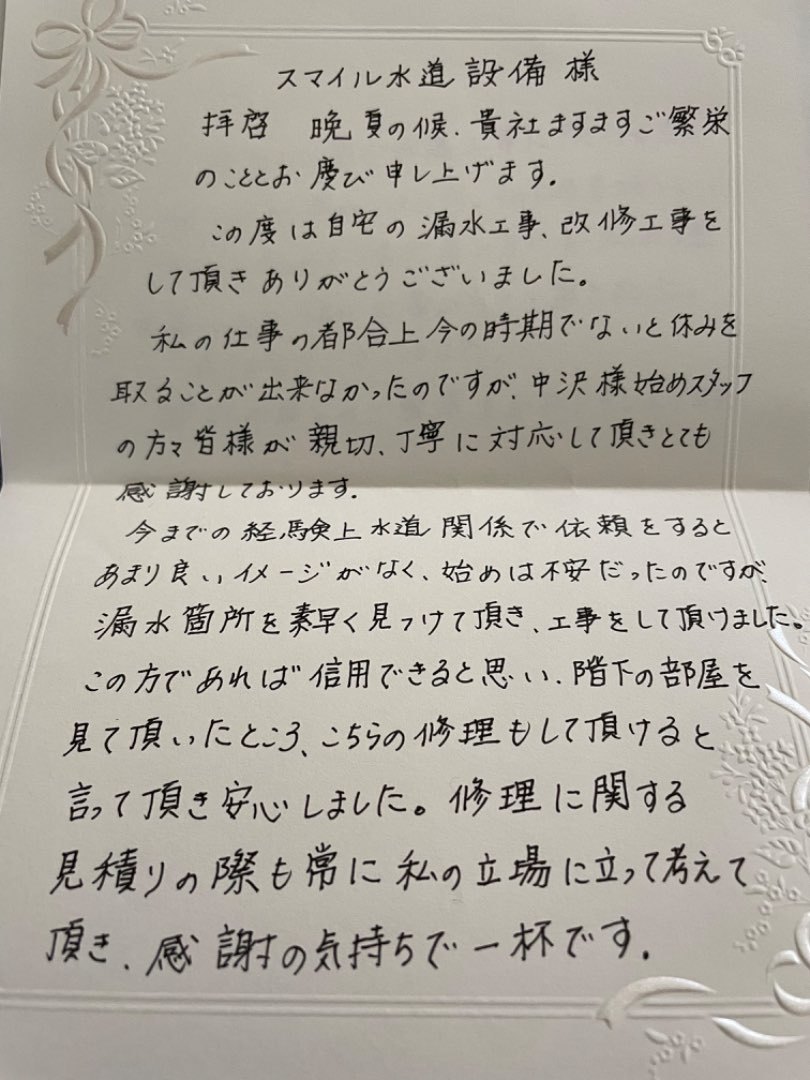 スマイル水道設備様
拝啓　晩夏の候、貴社ますますご繁栄
のこととお慶び申し上げます。
この度は自宅の漏水工事、改修工事を
して頂きありがとうございました。
私の仕事の都合上今の時期でないと休みを
取ることが出来なかったのですが、中沢様始めスタッフ
の方々皆様が親切、丁寧に対応して頂きとても
感謝しております。
今までの経験上水道関係で依頼をすると
あまり良いイメージがなく、始めは不安だったのですが、
漏水箇所を素早く見つけて頂き、工事をして頂けました。
この方であれば信用できると思い、階下の部屋を
見て頂いたところ、こちらの修理もして頂けると
言って頂き安心しました。修理に関する
見積りの際も常に私の立場に立って考えて
頂き、感謝の気持ちで一杯です。